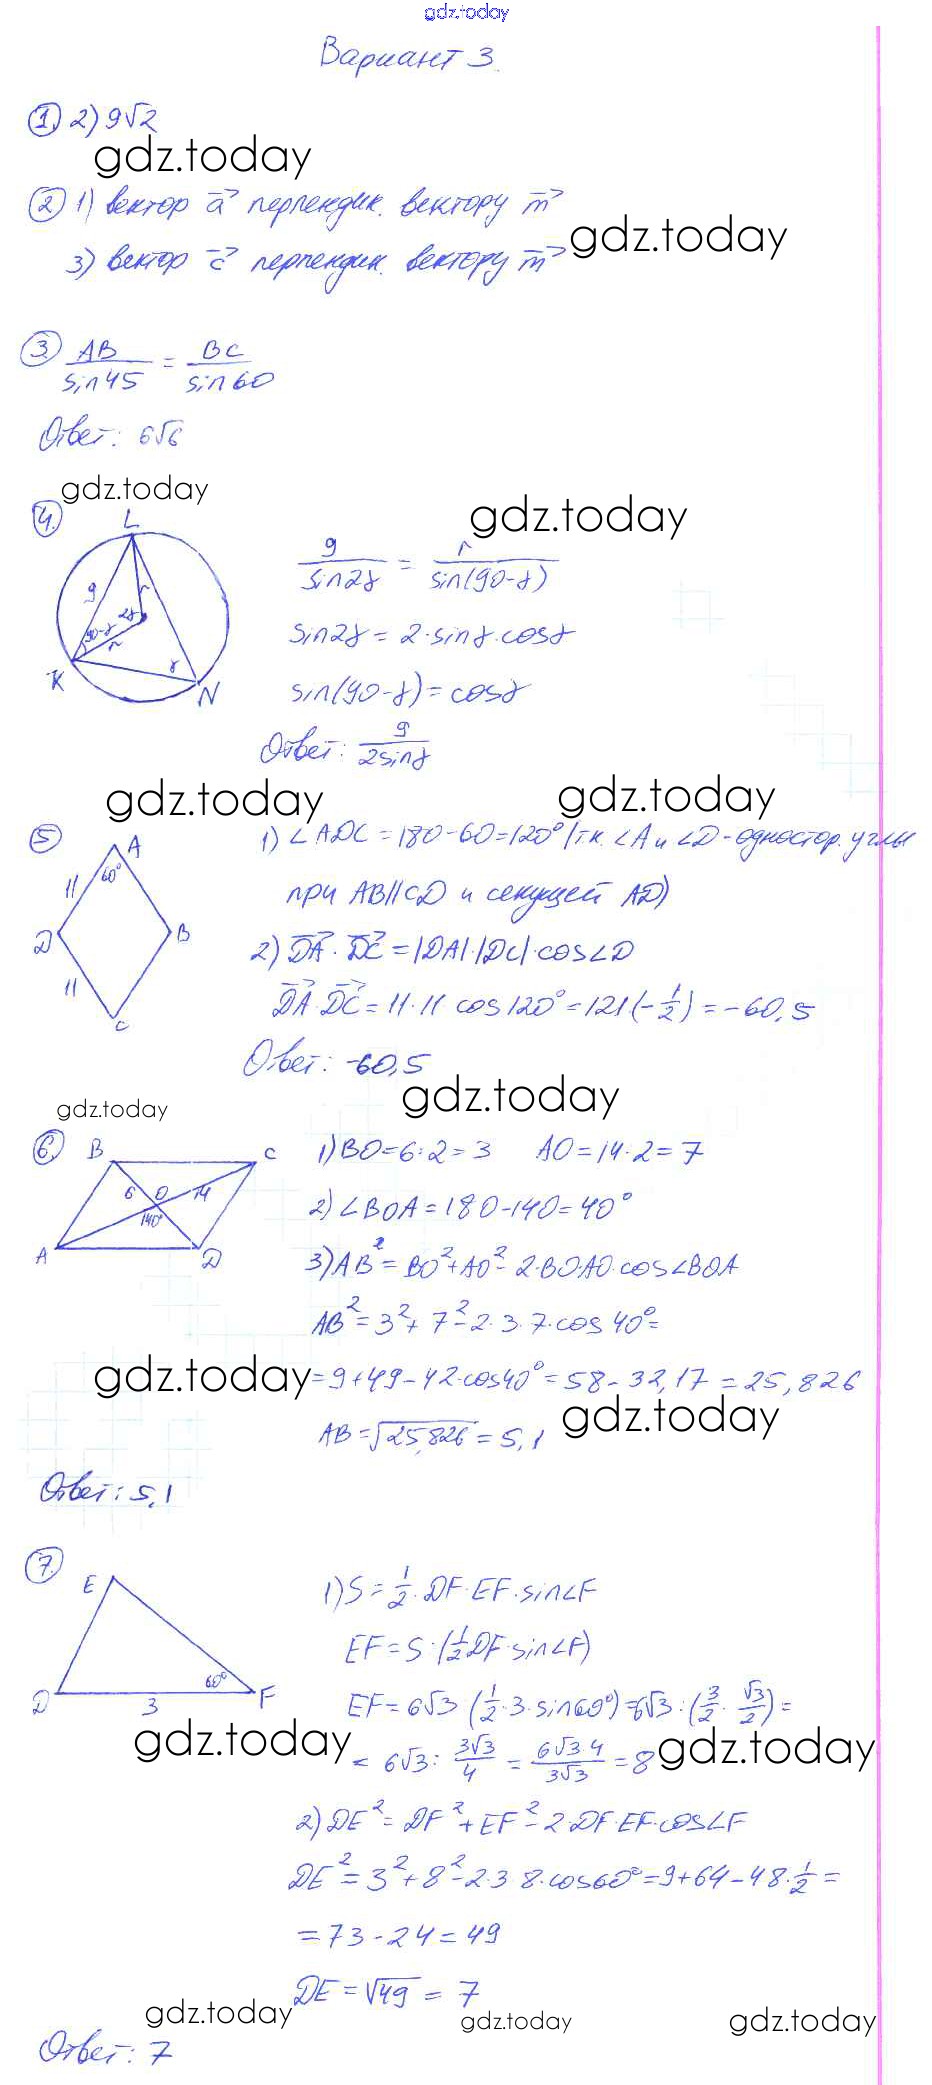 gdz.today
Вариант 3.
1. 2) 9√2
gdz.today
2 1) вектор a⃗ перпендик. вектору m⃗
gdz.today
3) вектор c⃗ перпендик. вектору m⃗
3. AB/sin45 = BC/sin60
Ответ: 6√6
gdz.today
4. L
gdz.today
g/sin2γ = r/sin(90-γ)
g r 2γ 90-γ r γ
sin2γ = 2·sinγ·cosγ
K N
sin(90-γ) = cosγ
Ответ: g/2sinγ
gdz.today gdz.today
5 A 60° 11 D B 11 C
1) ∠ADC = 180-60=120° /т.к. ∠A и ∠D-одностор. углы
при AB||CD и секущей AD)
2) DA⃗ · DC⃗ = |DA|·|DC|·cos∠D
DA⃗·DC⃗ = 11·11 cos120° = 121(-1/2) = -60,5
Ответ: -60,5
gdz.today
gdz.today
6. B C 6 O 14 140° A D
1) BO=6:2=3 AO=14·2=7
2) ∠BOA = 180-140=40°
3) AB²= BO²+AO²- 2·BO·AO·cos∠BOA
AB²= 3²+ 7²-2·3·7·cos 40°=
gdz.today
=9+49-42·cos40°=58-32,17 =25,826
gdz.today
AB=√25,826 = 5,1
Ответ: 5,1
7. E D 3 F 60°
1) S= 1/2· DF·EF·sin∠F
EF= S·(1/2DF·sin∠F)
EF= 6√3·(1/2·3·sin60°)=6√3:(3/2·√3/2)=
gdz.today
= 6√3: 3√3/4 = 6√3·4/3√3 =8
gdz.today
2) DE²= DF²+EF²-2·DF·EF·cos∠F
DE²= 3²+8²-2·3·8·cos60°=9+64-48·1/2=
=73-24=49
DE=√49 = 7
gdz.today
gdz.today
gdz.today
Ответ: 7